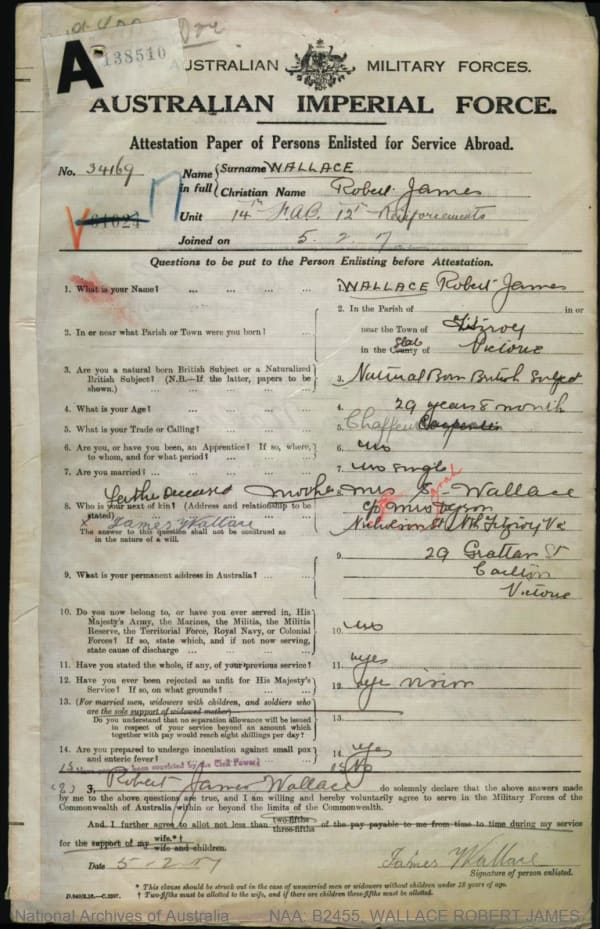 A
138510
AUSTRALIAN MILITARY FORCES.
AUSTRALIAN IMPERIAL FORCE.
Attestation Paper of Persons Enlisted for Service Abroad.
No. 34169
Name in full
Surname WALLACE
Christian Name Robert James
Unit 14th F.A.B. 12th Reinforcements
Joined on 5. 2. 17
Questions to be put to the Person Enlisting before Attestation.
1. What is your Name? ... ... ... ...
WALLACE Robert James
2. In or near what Parish or Town were you born? ...
2. In the Parish of in or
near the Town of Fitzroy
in the County of State Victoria
3. Are you a natural born British Subject or a Naturalized
British Subject? (N.B.—If the latter, papers to be
shown.) ... ... ... ...
3. Natural Born British Subject
4. What is your Age? ... ... ... ...
4. 29 years 8 month
5. What is your Trade or Calling? ... ... ...
5. Chaffeur Carpenter
6. Are you, or have you been, an Apprentice? If so, where,
to whom, and for what period? ... ... ...
6. no
7. Are you married? ... ... ... ...
7. no single
Father Deceased Mother Mrs S. Wallace
8. Who is your next of kin? (Address and relationship to be
stated)
c/o Mrs
x James Wallace
Nicholson St Nth Fitzroy Vic
The answer to this question shall not be construed as
in the nature of a will.
9. What is your permanent address in Australia? ... ...
9. 29 Grattan St
Carlton
Victoria
10. Do you now belong to, or have you ever served in, His
Majesty's Army, the Marines, the Militia, the Militia
Reserve, the Territorial Force, Royal Navy, or Colonial
Forces? If so, state which, and if not now serving,
state cause of discharge ... ... ...
10. no
11. Have you stated the whole, if any, of your previous service?
11. yes
12. Have you ever been rejected as unfit for His Majesty's
Service? If so, on what grounds? ... ...
12. eye vision
13. (For married men, widowers with children, and soldiers who
are the sole support of widowed mother)—
Do you understand that no separation allowance will be issued
in respect of your service beyond an amount which
together with pay would reach eight shillings per day?
13.
14. Are you prepared to undergo inoculation against small pox
and enteric fever? ... ... ... ...
14. yes
15 Have you ever been convicted by the Civil Power?
15 No
I, Robert James Wallace do solemnly declare that the above answers made
by me to the above questions are true, and I am willing and hereby voluntarily agree to serve in the Military Forces of the
Commonwealth of Australia within or beyond the limits of the Commonwealth.
And I further agree to allot not less than two-fifths three-fifths of the pay payable to me from time to time during my service
for the support of my wife.*† wife and children.
Date 5-2-17
James Wallace
Signature of person enlisted.
* This clause should be struck out in the case of unmarried men or widowers without children under 18 years of age.
† Two-fifths must be allotted to the wife, and if there are children three-fifths must be allotted.
National Archives of Australia NAA: B2455, WALLACE ROBERT JAMES